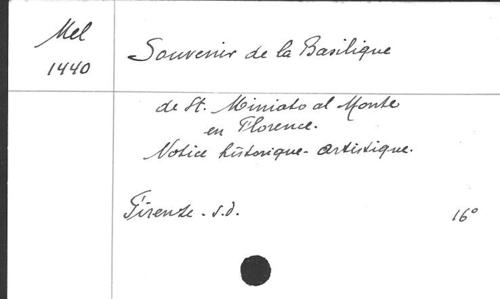 Mel
1440
Souvenir de la Basilique
de St. Miniato al Monte
en Florence.
Notice historique-artistique.
Firenze. s.d.
16°